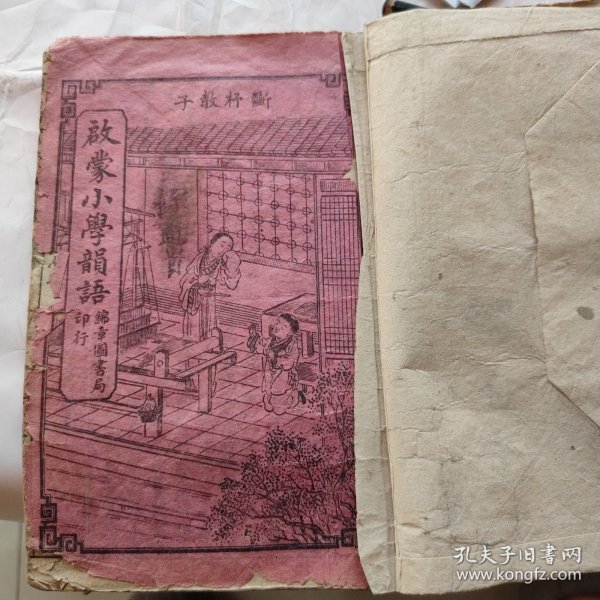 子教杼斷
啟蒙小學韻語
錦章圖書局
印行
孔夫子旧書网
www.kongfz.com